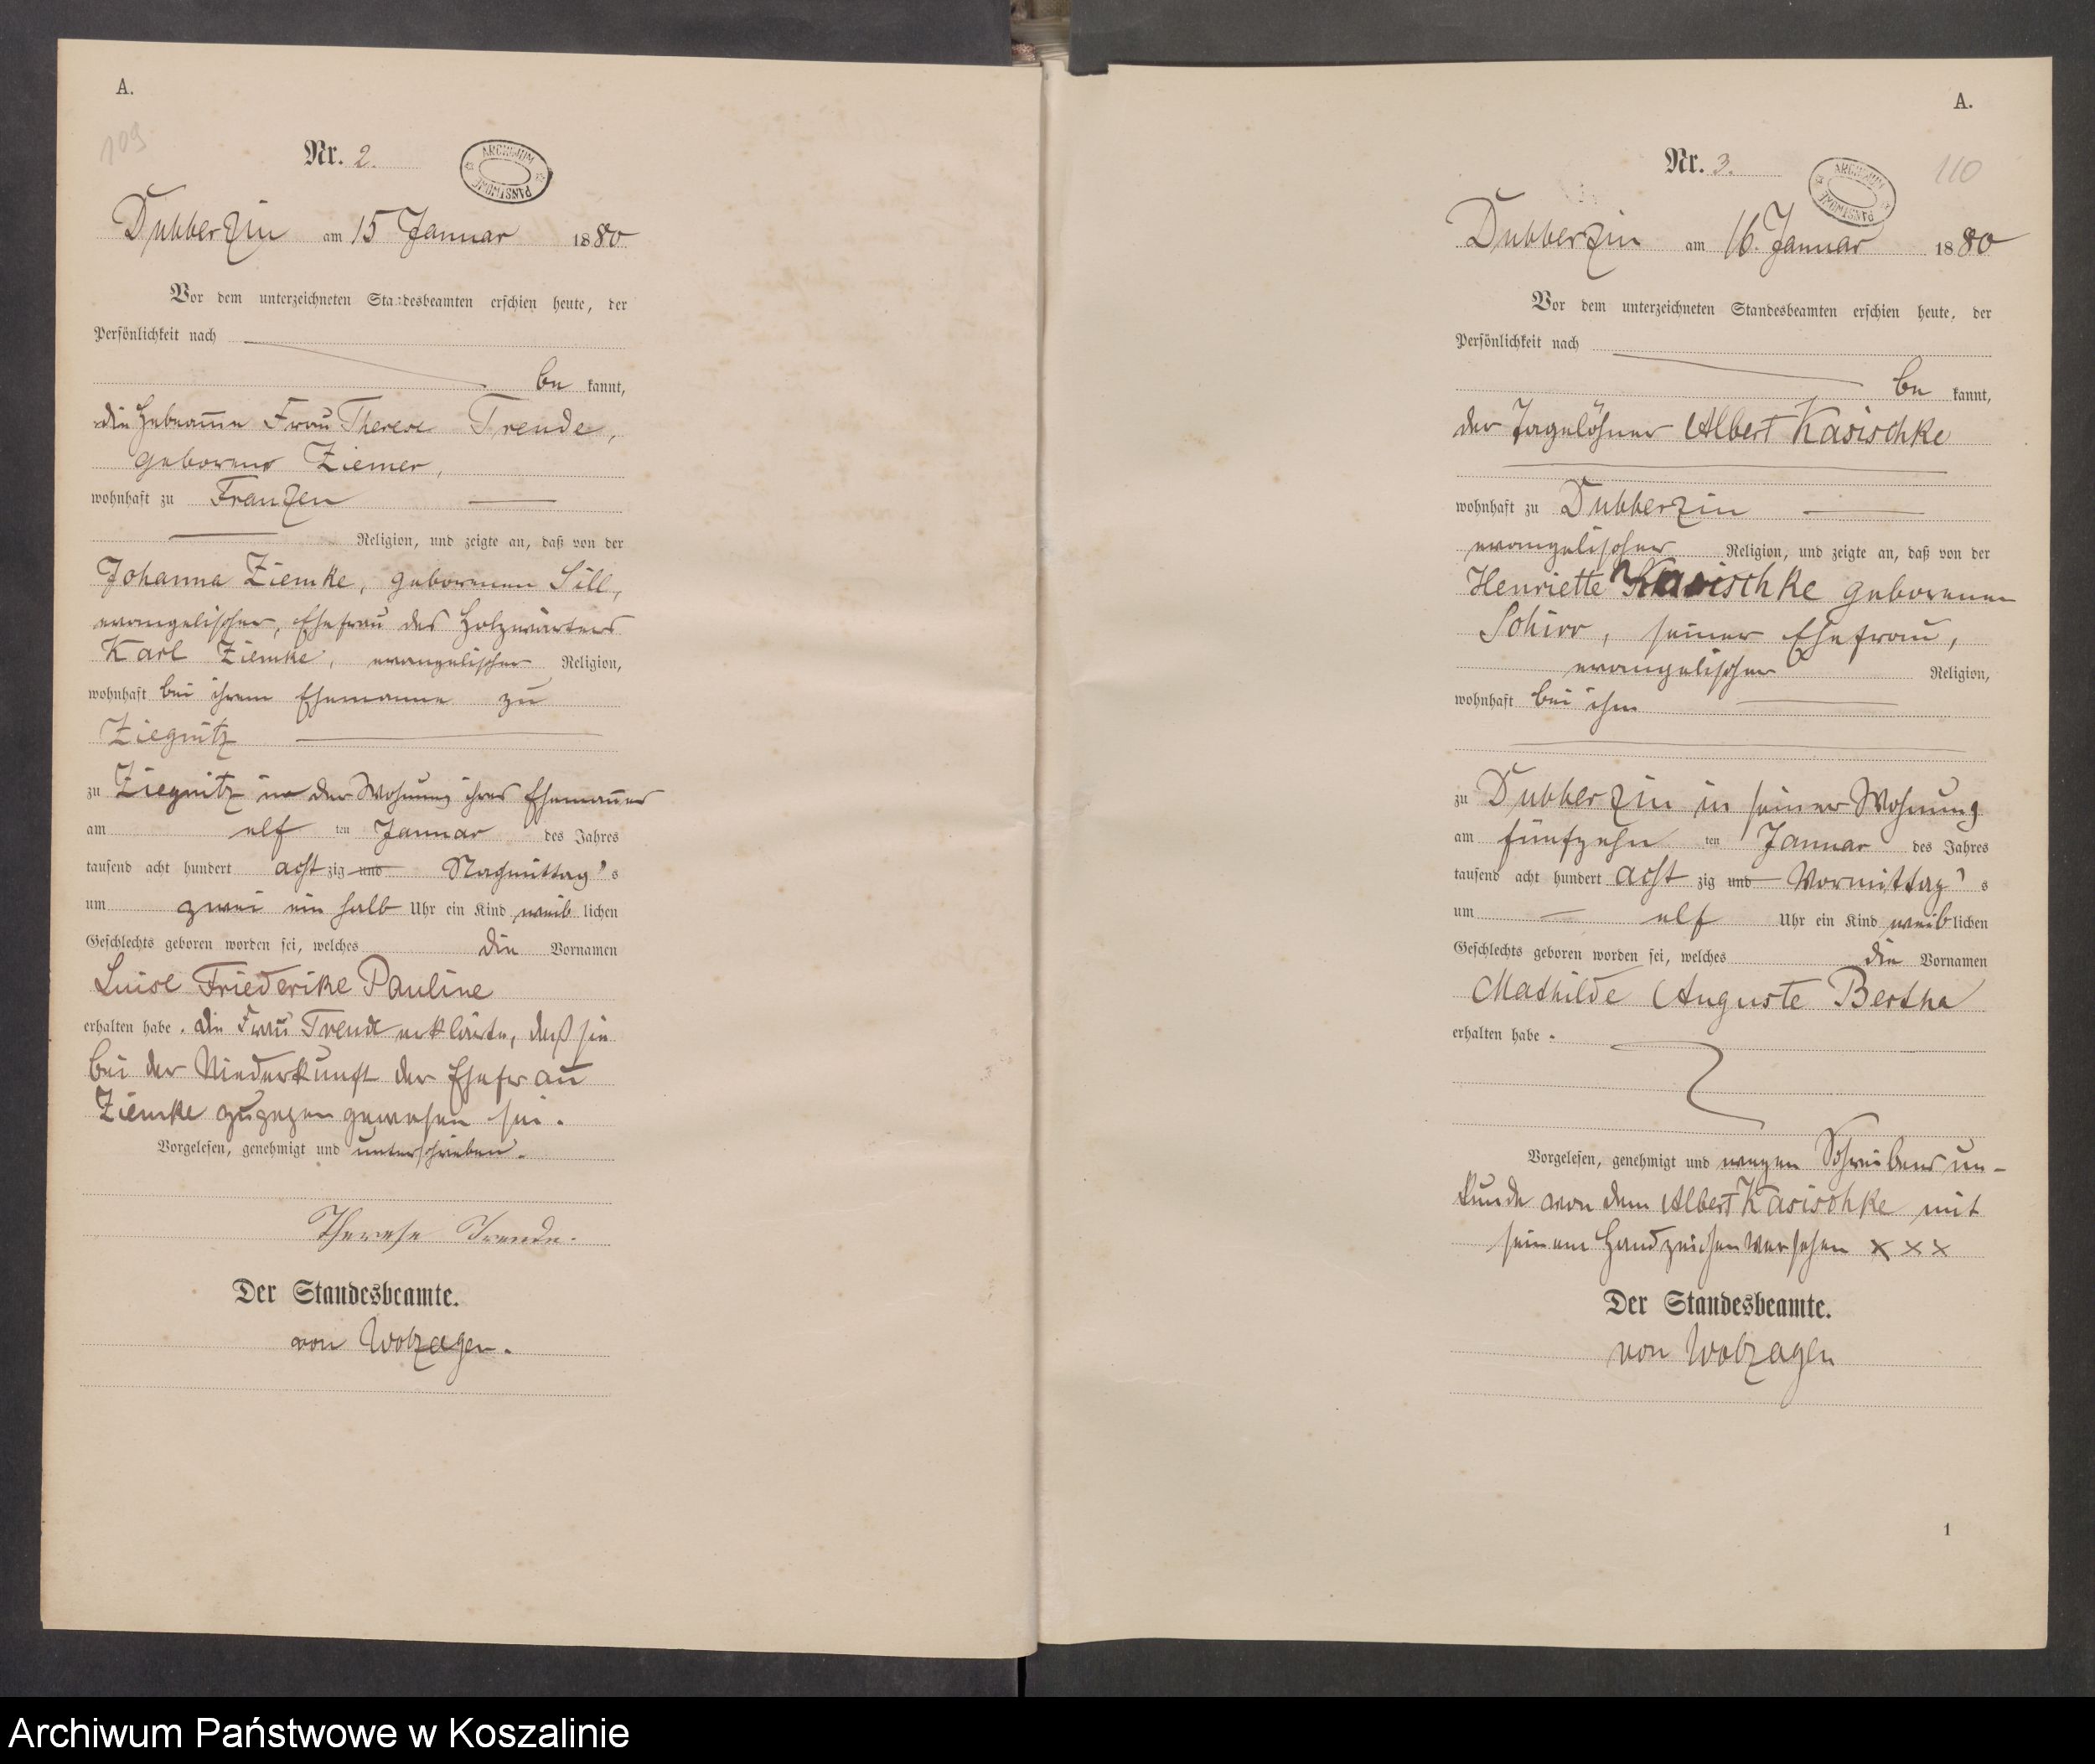 A.
109
Nr. 2.
ARCHIWUM PAŃSTWOWE
Dubberzin am 15 Januar 1880
Vor dem unterzeichneten Standesbeamten erschien heute, der
Persönlichkeit nach
be kannt,
die Hebeamme Frau Therese Trende,
geborene Ziemer,
wohnhaft zu Franzen
Religion, und zeigte an, daß von der
Johanna Ziemke, geborenen Sill,
evangelischer, Ehefrau des Holzwärters
Karl Ziemke, evangelischer Religion,
wohnhaft bei ihrem Ehemanne zu
Ziegnitz
zu Ziegnitz in der Wohnung ihres Ehemannes
am elf ten Januar des Jahres
tausend acht hundert acht zig und Nachmittag's
um zwei ein halb Uhr ein Kind weib lichen
Geschlechts geboren worden sei, welches die Vornamen
Luise Friederike Pauline
erhalten habe. Die Frau Trende erklärte, daß sie
bei der Niederkunft der Ehefrau
Ziemke zugegen gewesen sei.
Vorgelesen, genehmigt und unterschrieben.
Therese Trende.
Der Standesbeamte.
von Wolzogen.
A.
Nr. 3.
ARCHIWUM PAŃSTWOWE
110
Dubberzin am 16. Januar 1880
Vor dem unterzeichneten Standesbeamten erschien heute, der
Persönlichkeit nach
be kannt,
der Tagelöhner Albert Kasischke
wohnhaft zu Dubberzin
evangelischer Religion, und zeigte an, daß von der
Henriette Kasischke geborenen
Schirr, seiner Ehefrau,
evangelischer Religion,
wohnhaft bei ihm
zu Dubberzin in seiner Wohnung
am fünfzehn ten Januar des Jahres
tausend acht hundert acht zig und Vormittag's
um elf Uhr ein Kind weiblichen
Geschlechts geboren worden sei, welches die Vornamen
Mathilde Auguste Bertha
erhalten habe.
Vorgelesen, genehmigt und wegen Schreibens un-
kunde von dem Albert Kasischke mit
seinem Handzeichen versehen x x x
Der Standesbeamte.
von Wolzogen
1
Archiwum Państwowe w Koszalinie